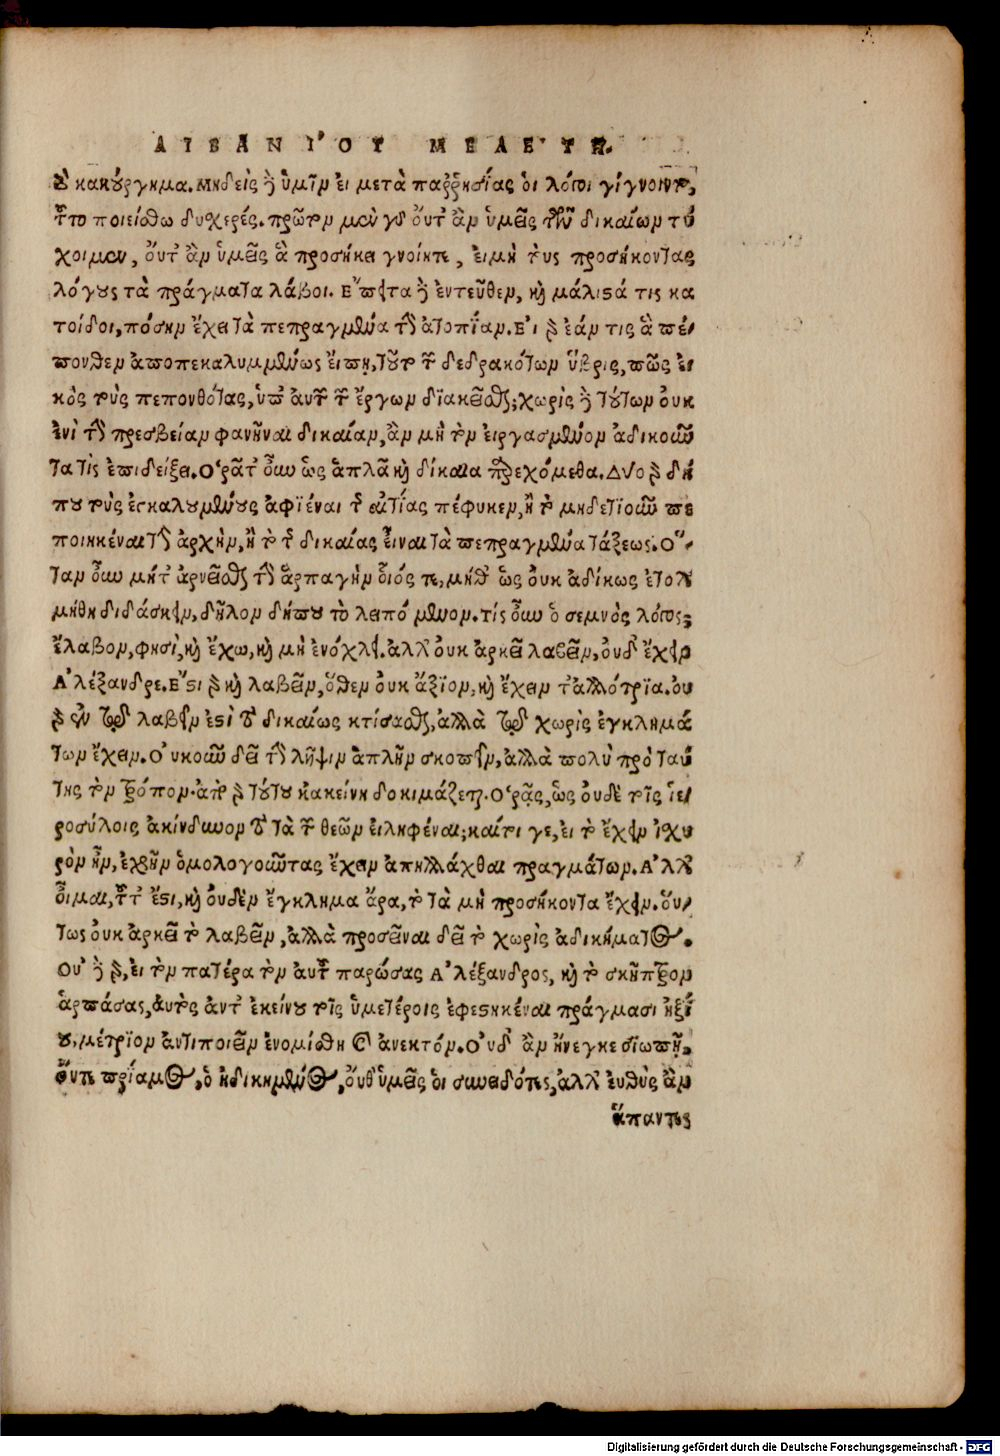 ΛΙΒΑΝΙ´ΟΥ ΜΕΛΕ´ΤΗ.
τὸ κακούργημα. Μηδεὶς δὲ ὑμῖν εἰ μετὰ παῤῥησίας ὁι λόγοι γίγνοιντο,
τοῦτο ποιείσθω δυχερές. πρῶτον μὲν γὰρ οὔτ᾽ ἂν ὑμᾶς τῶν δικαίων τύ
χοιμεν, ὄυτ᾽ ἂν ὑμᾶς ἃ προσήκει γνοίητε, ἐιμὴ τοὺς προσήκοντας
λόγους τὰ πράγματα λάβοι. Ἔπειτα δὲ ἐντεῦθεν, καὶ μάλιστά τις κα
τοίδοι, πόσην ἔχει τὰ πεπραγμένα τὴν ἀτοπίαν. Ἐι γὰρ ἐάν τις ἃ πέ-
πονθεν ἀποπεκαλυμμένως ἔιπῃ, τοῦτο τῶν δεδρακότων ὕβρις, πῶς ἐι
κὸς τοὺς πεπονθότας, ὑπ᾽ ἀυτῶν τῶν ἔργων διακεῖσθαι; χωρὶς δὲ τούτων ουκ
ἔνι τὴν πρεσβείαν φανῆναι δικαίαν, ἂν μὴ τὸν ἐιργασμένον ἀδικοῦν
τα τὶς ἐπιδείξει. Ὁρᾶτ᾽ οὖν ὡς ἁπλᾶ καὶ δίκαια παρεχόμεθα. Δύο γὰρ δή
που τοὺς ἐγκαλουμένους ἀφιέναι τῆς αἰτίας πέφυκεν, ἢ τὸ μηδετιοῦν πε
ποιηκέναι τὴν ἀρχὴν, ἢ τὸ τῆς δικαίας εἶναι τὰ πεπραγμένα τάξεως. Ὅ-
ταν οὖν μήτ᾽ ἀρνεῖσθαι τὴν ἁρπαγὴν οἷός τε, μήθ᾽ ὡς ὀυκ ἀδίκως ἐτολ
μήθη διδάσκειν, δῆλον δήπου τὸ λειπόμενον. τίς οὖν ὁ σεμνὸς λόγος;
ἔλαβον, φησὶ, καὶ ἔχω, καὶ μὴ ἐνόχλει. ἀλλ᾽ ὀυκ ἀρκεῖ λαβεῖν, ὀυδ᾽ ἔχειν
Ἀλέξανδρε. Ἔστι γὰρ καὶ λαβεῖν, ὅθεν ὀυκ ἄξιον, καὶ ἔχειν τἀλλότρια. ὀυ
γὰρ ἐν τῷ λαβεῖν ἐστὶ τὸ δικαίως κτίσασθαι, ἀλλὰ τῷ χωρὶς ἐγκλημά
των ἔχειν. Ὀυκοῦν δεῖ τὴν λῆψιν ἁπλῆν σκοπεῖν, ἀλλὰ πολὺ πρὸ ταύ
της τὸν τρόπον. ἀπὸ γὰρ τούτου κἀκείνη δοκιμάζεται. Ὁρᾷς, ὡς ὀυδὲ τοῖς ἱε-
ροσύλοις ἀκίνδυνον τὸ τὰ τῶν θεῶν ἐιληφέναι; καίτοι γε, ἐι τὸ ἔχειν ἰσχυ
ρὸν ἦν, ἐχρῆν ὁμολογοῦντας ἔχειν ἀπηλλάχθαι πραγμάτων. Ἀλλ᾽
οἶμαι, τοῦτ᾽ ἔστι, καὶ ὀυδὲν ἔγκλημα ἄρα, τὸ τὰ μὴ προσήκοντα ἔχειν. ὅυ-
τως ὀυκ ἀρκεῖ τὸ λαβεῖν, ἀλλὰ προσεῖναι δεῖ τὸ χωρὶς ἀδικήματος.
Ὀυ δὲ γὰρ, ἐι τὸν πατέρα τὸν ἀυτοῦ παρώσας Ἀλέξανδρος, καὶ τὸ σκῆπτρον
ἁρπάσας, ἀυτὸς ἀντ᾽ ἐκείνου τοῖς ὑμετέροις ἐφεστηκέναι πράγμασι ἠξί
ου, μέτριον ἀντιποιεῖν ἐνομίσθη καὶ ἀνεκτόν. Ὀυδ᾽ ἂν ἤνεγκε σιωπῇ,
ὄυτε πρίαμος, ὁ ἠδικημένος, ὄυθ᾽ ὑμᾶς ὁι συνειδότες, ἀλλ᾽ ἐυθὺς ἂν
ἅπαντες
Digitalisierung gefördert durch die Deutsche Forschungsgemeinschaft - DFG